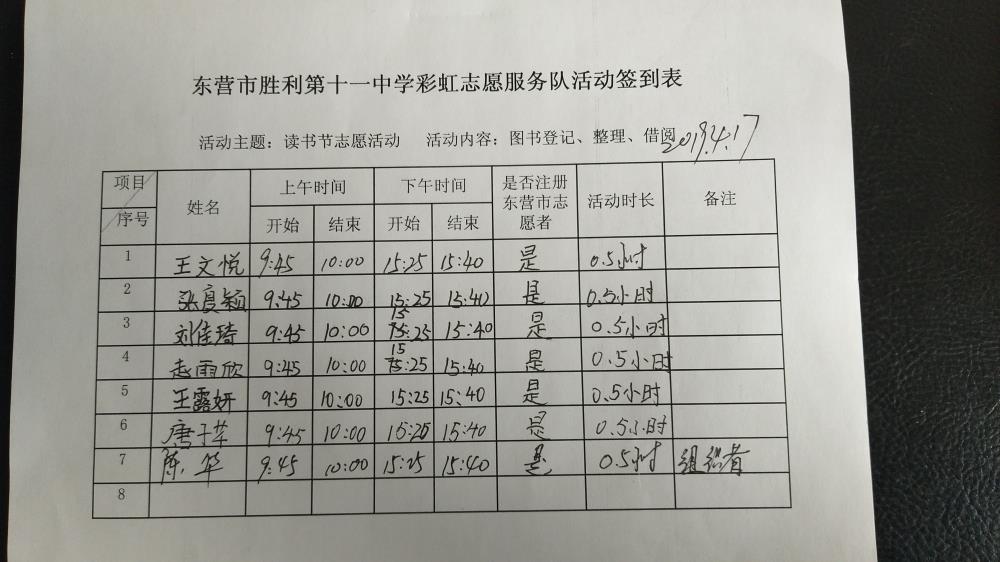 东营市胜利第十一中学彩虹志愿服务队活动签到表
活动主题：读书节志愿活动 活动内容：图书登记、整理、借阅 2019.4.17
项目 序号 姓名 上午时间 下午时间 是否注册东营市志愿者 活动时长 备注
开始 结束 开始 结束
1 王文悦 9:45 10:00 15:25 15:40 是 0.5小时
2 张良颖 9:45 10:00 15:25 15:40 是 0.5小时
3 刘佳琦 9:45 10:00 15:25 15:40 是 0.5小时
4 赵雨欣 9:45 10:00 15:25 15:40 是 0.5小时
5 王露妍 9:45 10:00 15:25 15:40 是 0.5小时
6 唐子苹 9:45 10:00 15:25 15:40 是 0.5小时
7 陈华 9:45 10:00 15:25 15:40 是 0.5小时 组织者
8